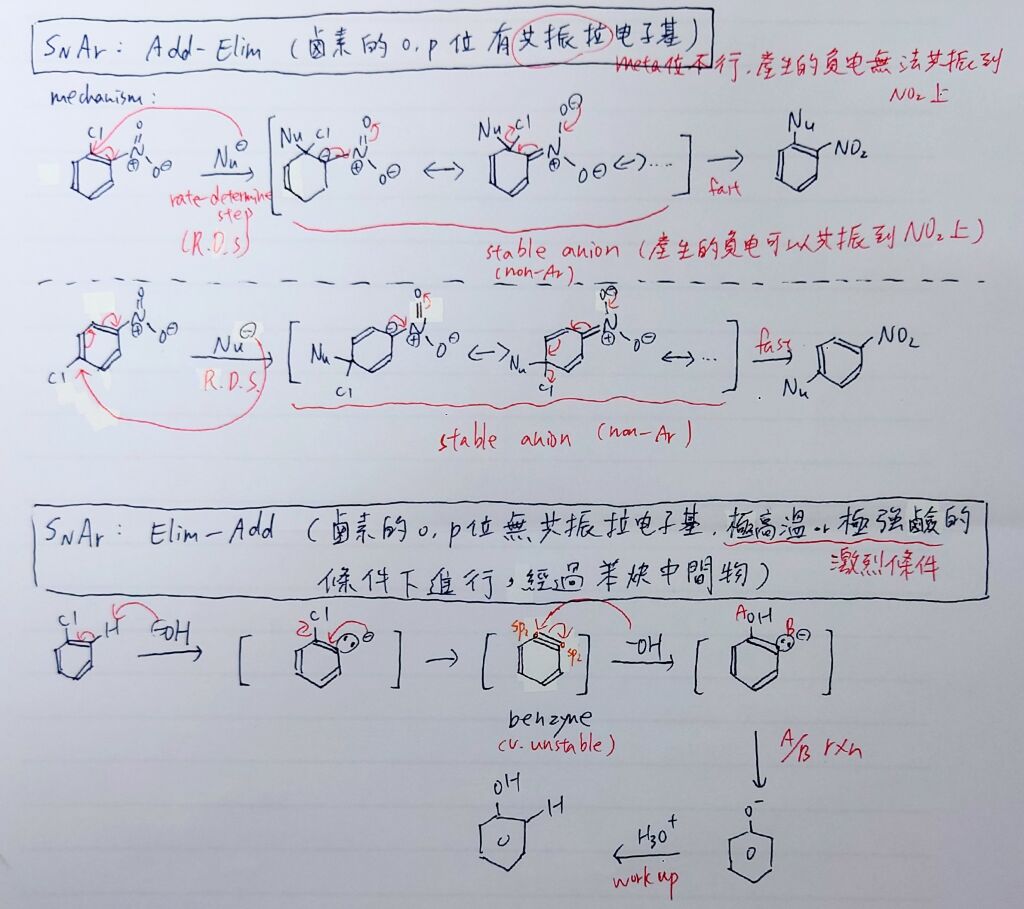 SNAr: Add-Elim (鹵素的 o, p 位有共振拉电子基)
meta位不行,產生的負电無法共振到
NO₂上
mechanism:
Cl N O O⊖ ⊕
Nu⊖
rate-determine
step
(R.D.S)
[ Nu Cl ⊖ N ⊕ O O⊖ ↔ Nu Cl N ⊕ O⊖ O⊖ ↔ .... ]
fast
Nu NO₂
stable anion (產生的負电可以共振到NO₂上)
(non-Ar)
Cl N ⊕ O O⊖
Nu⊖
R.D.S.
[ Nu Cl ⊖ N ⊕ O O⊖ ↔ Nu Cl N ⊕ O⊖ O⊖ ↔ ... ]
fast
Nu NO₂
stable anion (non-Ar)
SNAr: Elim-Add (鹵素的 o, p位無共振拉电子基,極高溫 or 極強鹼的
激烈條件
條件下進行,經過苯炔中間物)
Cl H
⁻OH
[ Cl ⊖ ]
[ sp₂ sp₂ ]
⁻OH
[ A OH B ⊖ ]
benzyne
(v. unstable)
A/B rxn
O⁻
H₃O⁺
work up
OH H